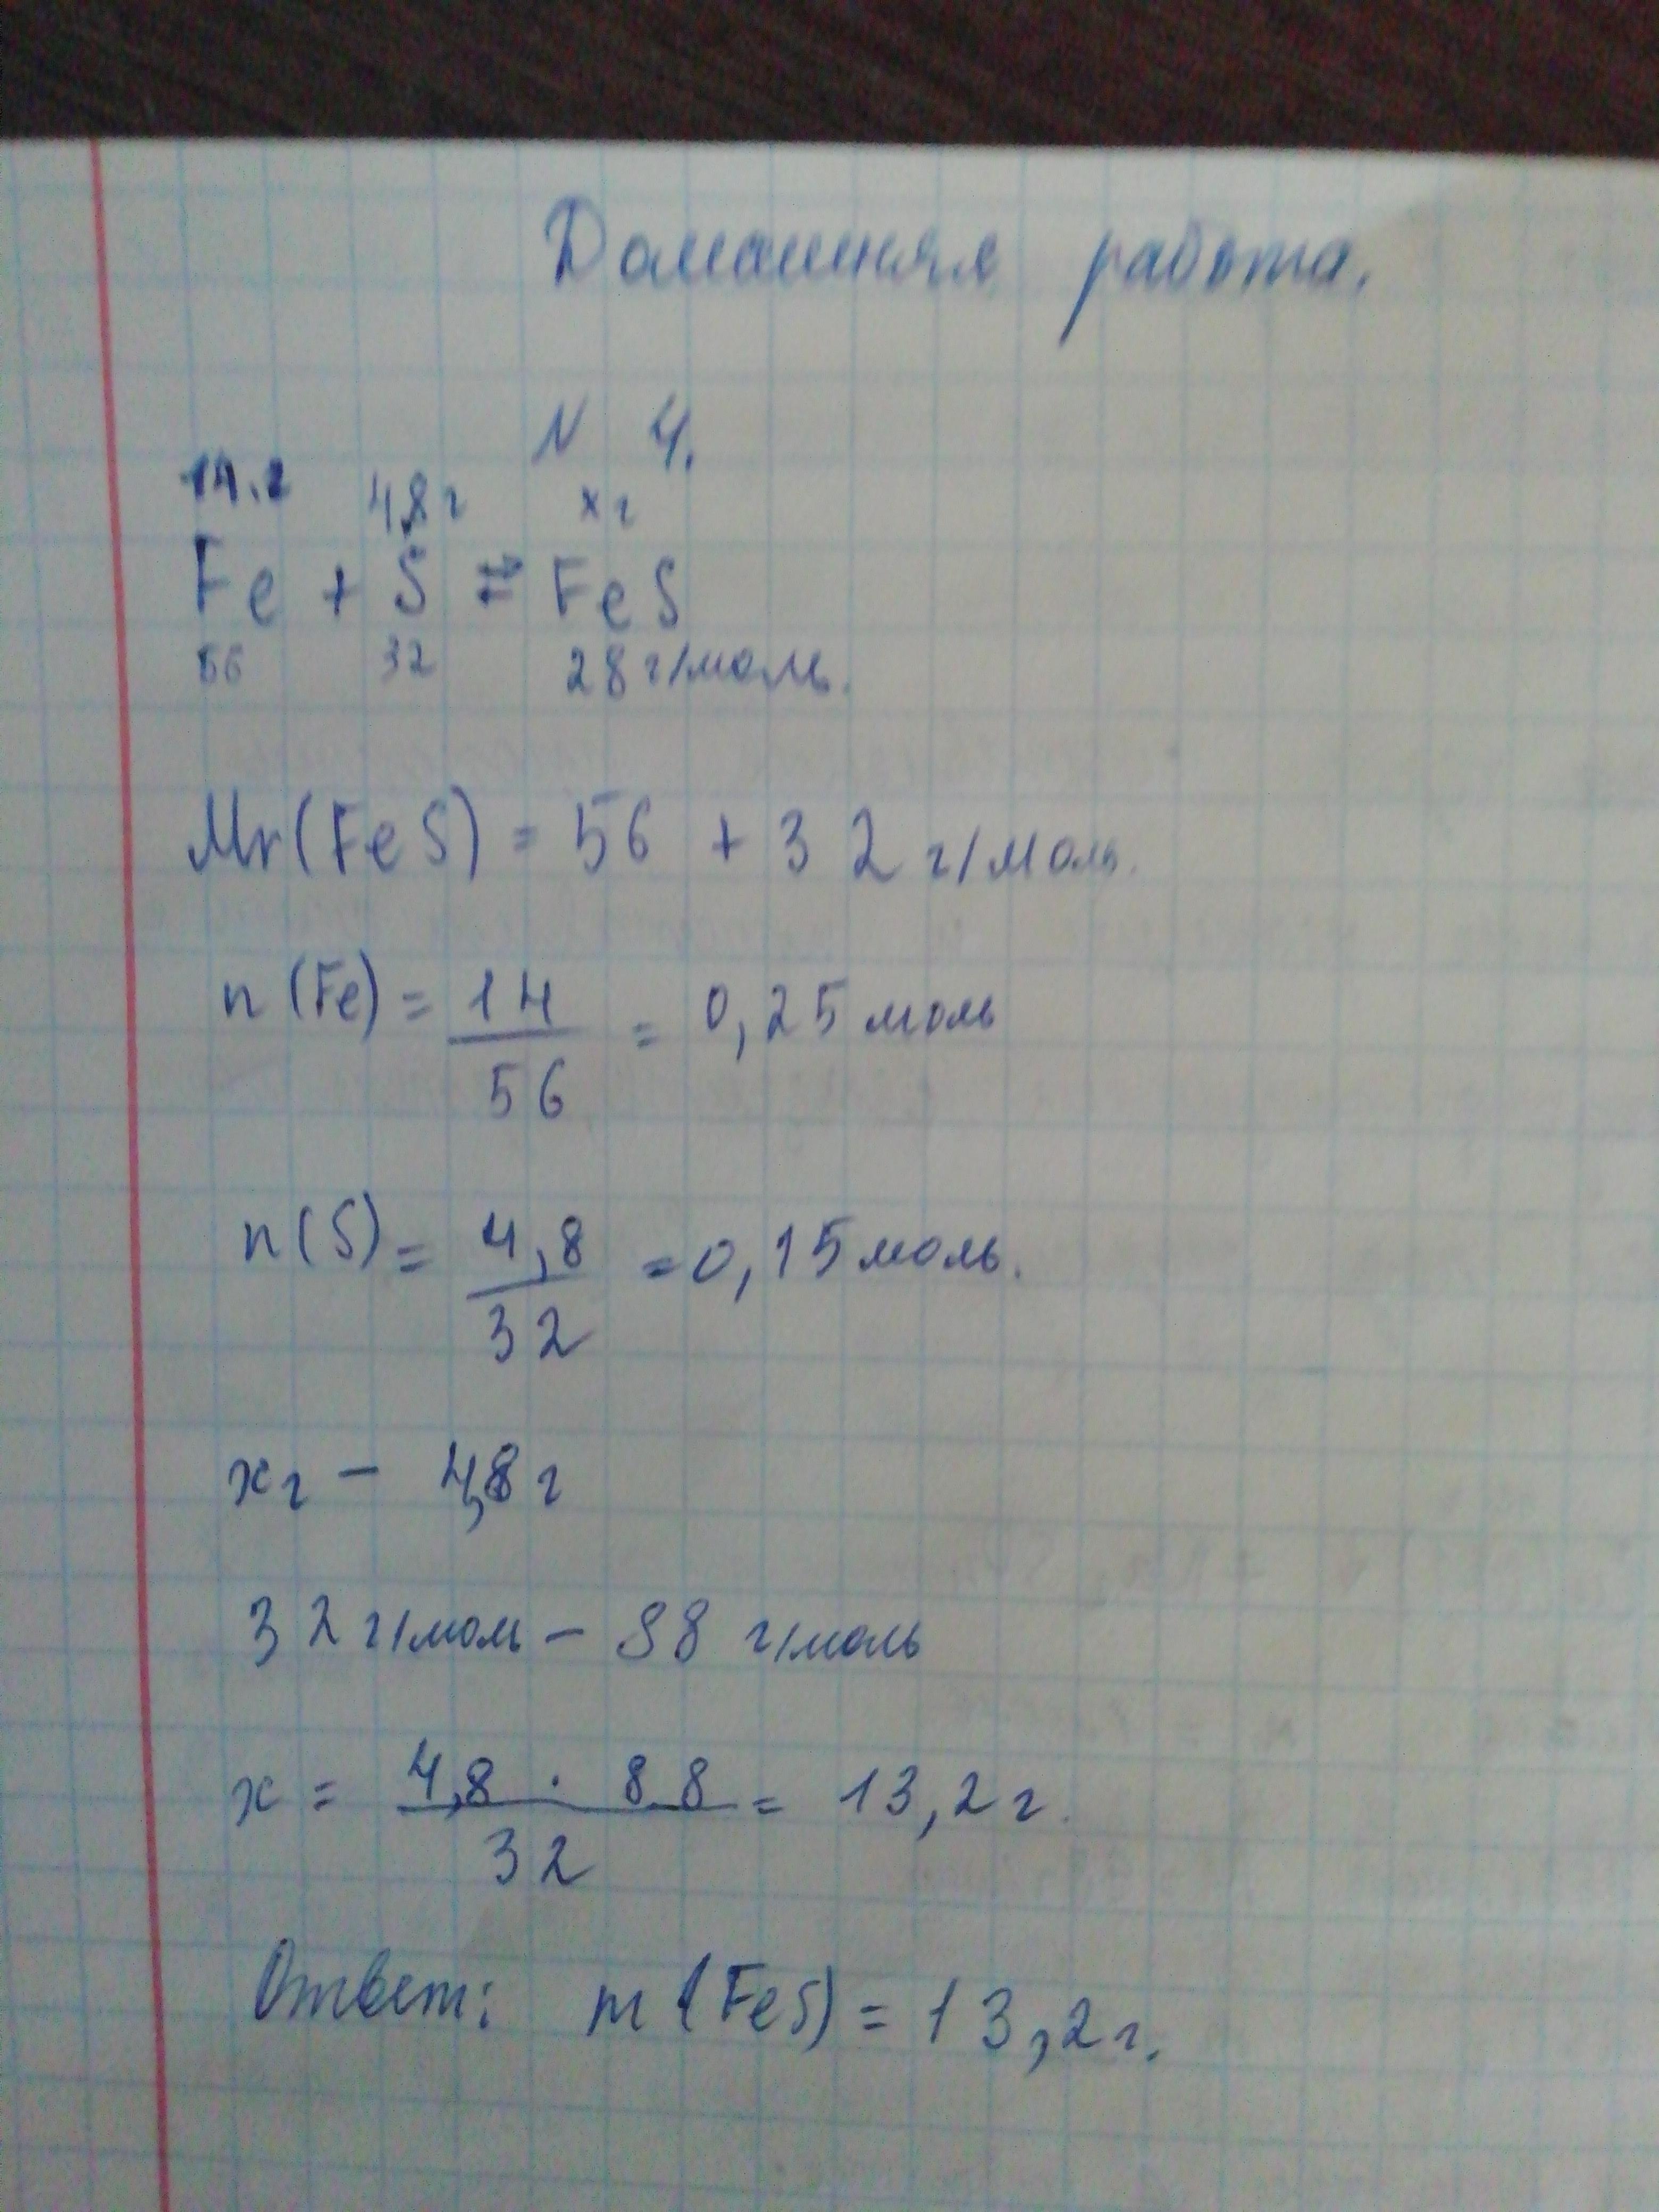 Домашняя работа.
N 4.
14.г 4,8г xг
Fe + S ⇄ FeS
56 32 28г/моль.
Mr(FeS) = 56 + 32 г/моль.
n(Fe) = 14/56 = 0,25 моль
n(S) = 4,8/32 = 0,15 моль.
xг - 4,8 г
32 г/моль - 88 г/моль
x = 4,8 · 88/32 = 13,2 г.
Ответ: m(FeS) = 13,2г.